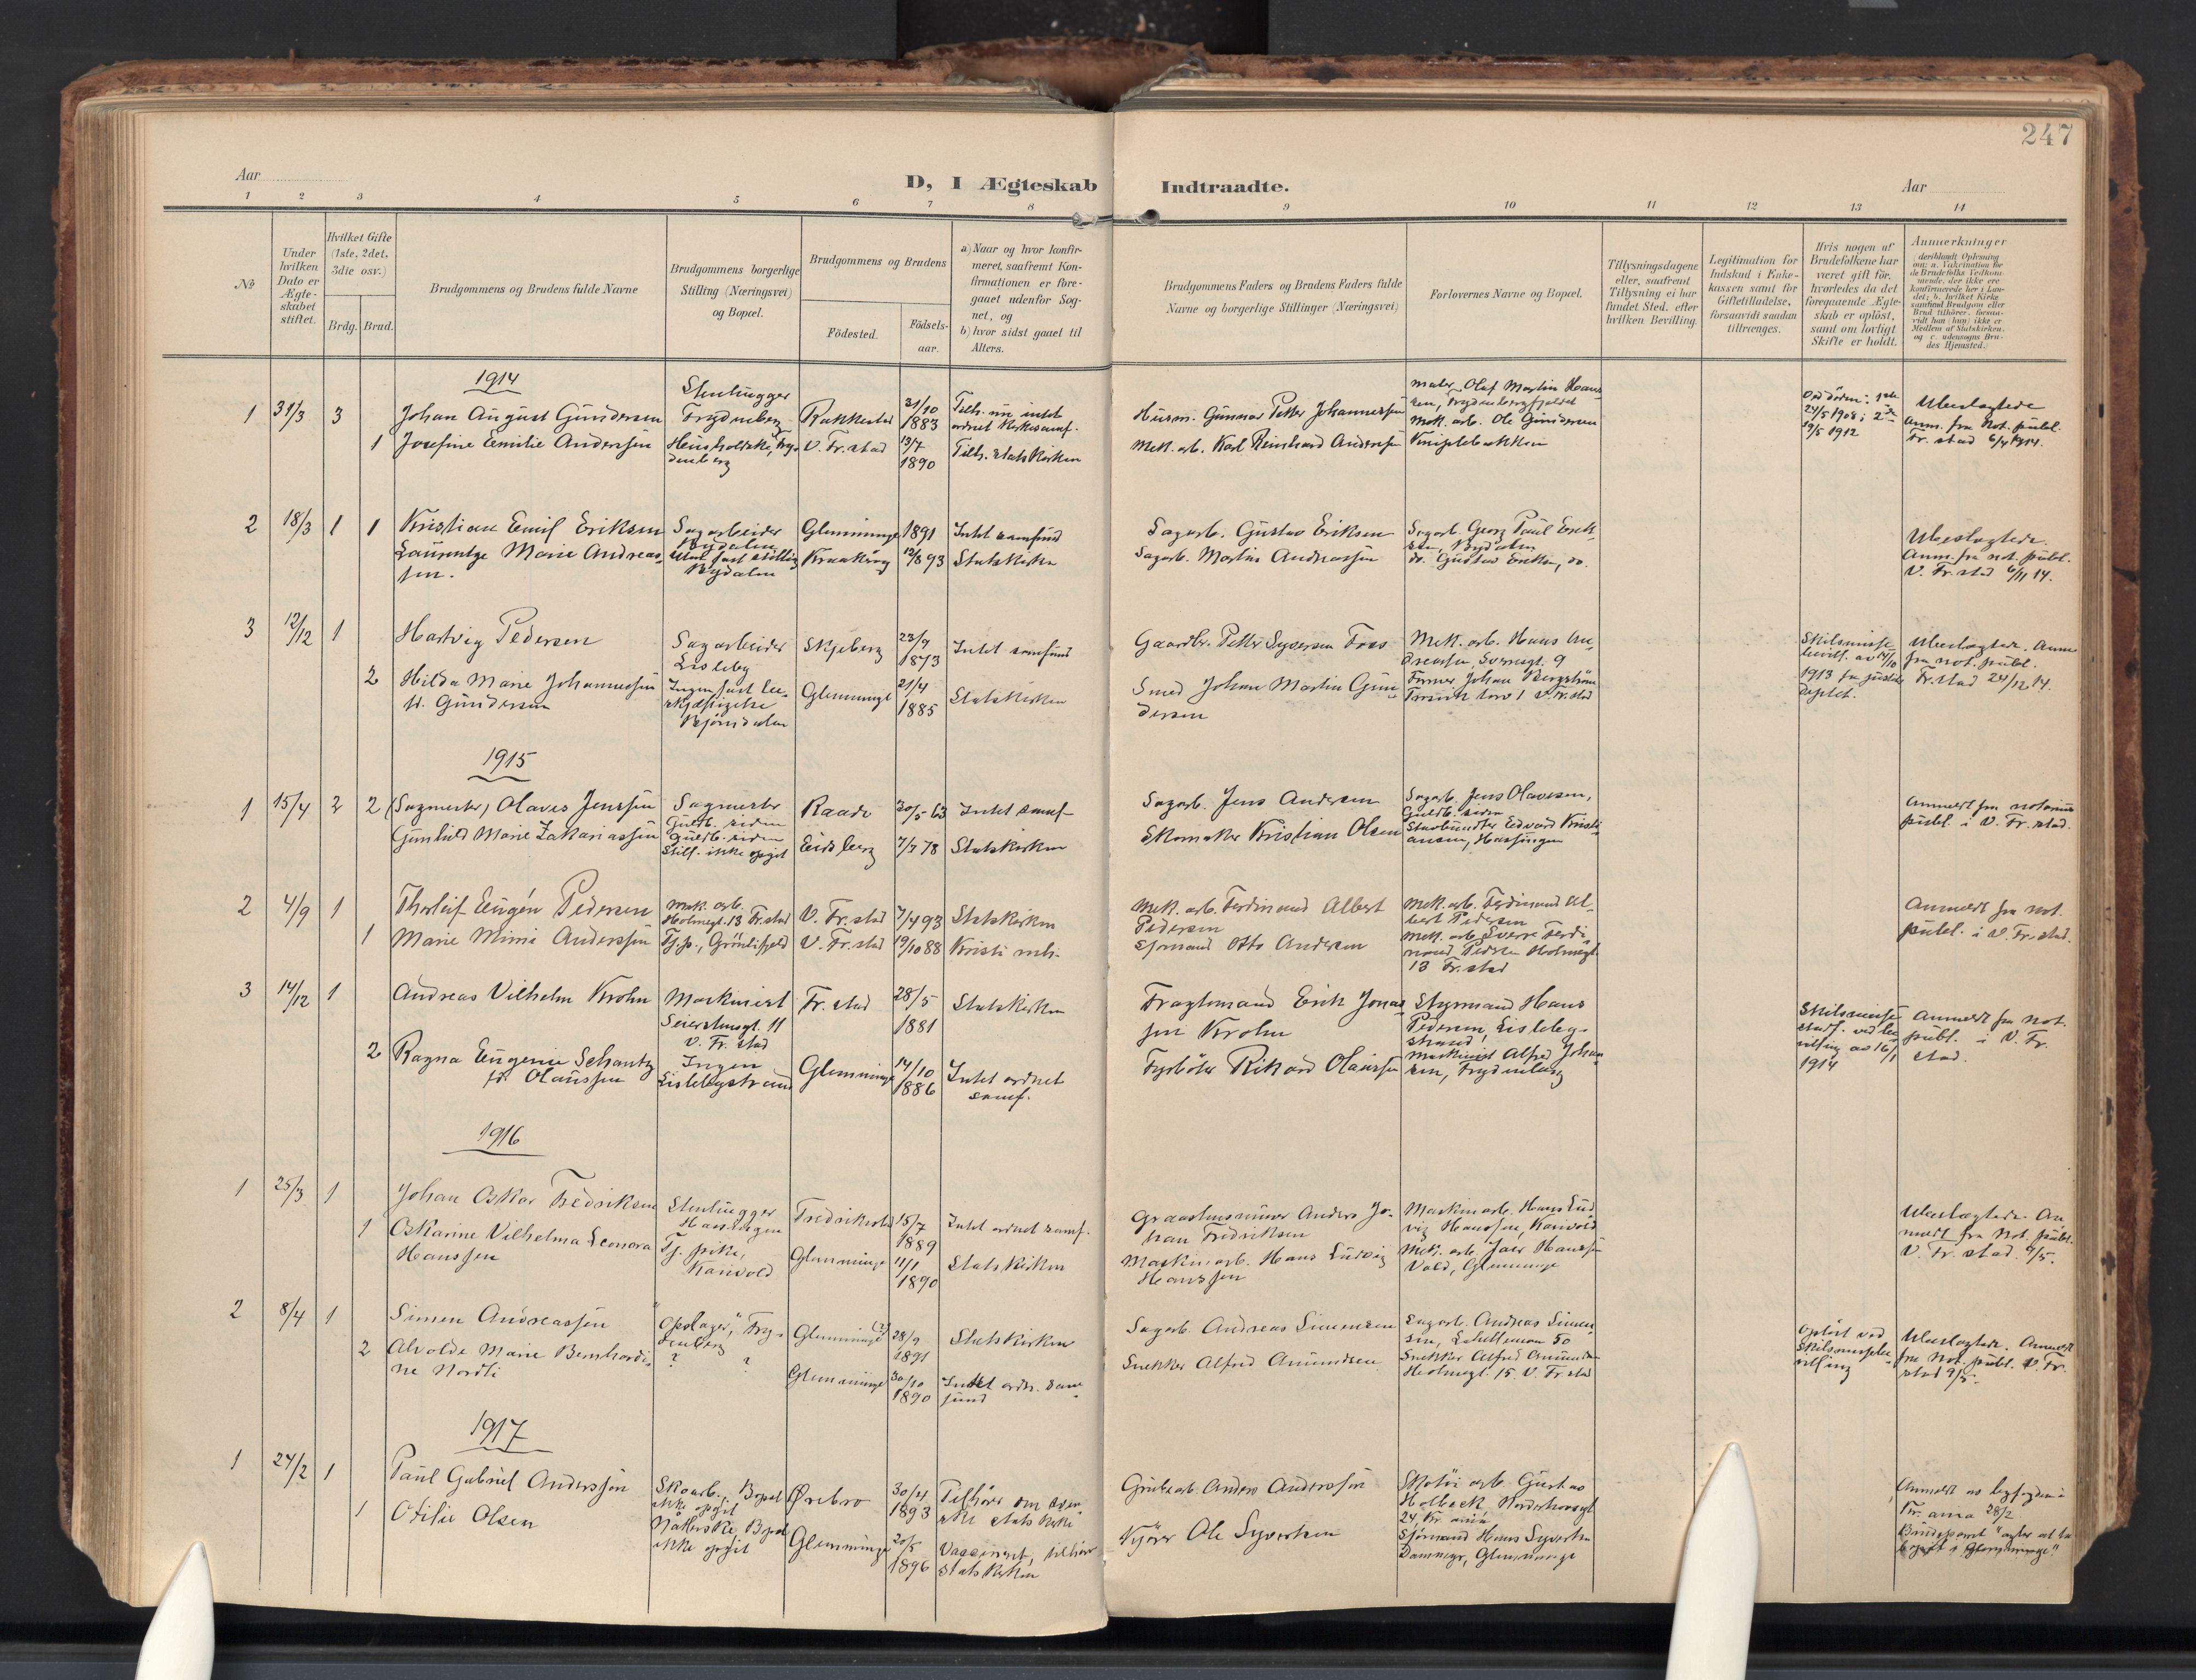 247
Aar
D, I Ægteskab Indtraadte.
Aar
1 2 3 4 5 6 7 8 9 10 11 12 13 14
No
Under hvilken Dato er Ægteskabet stiftet.
Hvilket Gifte (1ste, 2det, 3die osv.)
Brdg. Brud.
Brudgommens og Brudens fulde Navne
Brudgommens borgerlige Stilling (Næringsvei) og Bopæl.
Brudgommens og Brudens
Födested.
Födsels-aar.
a) Naar og hvor konfirmeret, saafremt Konfirmationen er foregaaet udenfor Sognet, og
b) hvor sidst gaaet til Alters.
Brudgommens Faders og Brudens Faders fulde Navne og borgerlige Stillinger (Næringsvei)
Forlovernes Navne og Bopæl.
Tillysningsdagene eller, saafremt Tillysning ei har fundet Sted, efter hvilken Bevilling.
Legitimation for Indskud i Enkekassen samt for Giftetilladelse, forsaavidt saadan tiltrænges.
Hvis nogen af Brudefolkene har været gift för, hvorledes da det foregaaende Ægteskab er oplöst, samt om lovligt Skifte er holdt.
Anmerkninger
1914
1 31/3 3 Johan August Gundersen Stenhugger Frydenberg Rakkestad 31/10 1883 Tilh. nu intet ordnet Kirkesamf.
Husm. Gunnar Petter Johannessen
maler Olaf Martin Hansen, Frydenbergfjeldet
Mek. arb. Ole Gundersen
Ved döden: 1ste 24/5 1908; 2de 19/5 1912
Ubeslægtede Anm. fra Not. publ. Fr.stad 6/4 1914.
1 Josefine Emilie Andersen Husholderske, Frydenberg V. Fr.stad 13/7 1890 Tilh. Statskirken
Mek. arb. Karl Reinhard Andersen
Kniplebakken
2 18/3 1 1 Kristian Emil Eriksen Sagarbeider Nydalen Glemminge 1891 Intet samfund
Sagarb. Gustav Eriksen
Sagarb. Georg Paul Eriksen, Nydalen
Laurentze Marie Andreassen. Uten fast stilling Nydalen Kraakeröy 12/8 93 Statskirken
Sagarb. Martin Andreassen
do. Gustav Eriksen, do.
Ubeslægtede. Anm. fra not. publ. V. Fr.stad 6/11 14.
3 12/12 1 Hartvig Pedersen Sagarbeider Lisleby Skjeberg 23/9 1873 Intet samfund
Gaardbr. Petter Syversen Foss
Mek. arb. Hans Andreassen, Sverresgt. 9
2 Hilda Marie Johannessen f. Gundersen Ingen fast beskjæftigelse Björndalen Glemminge 21/4 1885 Statskirken
Smed Johan Martin Gundersen
Former Johan Bergström torv 1 V. Fr.stad
Skilsmissebevill. av 14/10 1913 fra justitsdeptet.
Ubeslægtede. Anm. fra not. publ. Fr.stad 24/12 14.
1915
1 15/4 2 2 (Sagmester) Olaves Jenssen Sagmester Guldb. siden Raade 30/5 63 Intet samf.
Sagarb. Jens Andersen
Sagarb. Jens Olavesen, Guldb. siden
Gunhild Marie Zakariassen Guldb. siden Still. ikke opgit Eidsberg 7/7 78 Statskirken
Skomaker Kristian Olsen
Edvard Kristiansen, Hassingen
Anmeldt fra notarius publ. i V. Fr.stad.
2 4/9 1 Thorleif Eugén Pedersen Mek. arb. Holmegt. 13 Fr.stad V. Fr.stad 7/4 93 Statskirken
Mek. arb. Ferdinand Albert Pedersen
Mek. arb. Ferdinand Albert Pedersen
1 Marie Mimi Anderssen Tj.p., Grönlifjeld V. Fr.stad 19/10 88 Kristi mh.
Sjömand Otto Andersen
Mek. arb. Sverre Ferdinand Pedersen Holmegt. 13 Fr.stad
Anmeldt fra not. publ. i V. Fr.stad.
3 14/12 1 Andreas Vilhelm Krohn Maskinist Seierstensgt. 11 V. Fr.stad Fr.stad 28/5 1881 Statskirken
Fragtemand Erik Jonassen Krohn
Styrmand Hans Pedersen, Lislebystrand
2 Ragna Eugenie Schantz f. Olaussen Ingen Lislebystrand Glemminge 14/10 1886 Intet ordnet samf.
Fyrböter Rikard Olaussen
Maskinist Alfred Johansen, Frydenberg
Skilsmisse ved bevilling av 16/1 1914
Anmeldt fra not. publ. i V. Fr.stad.
1916
1 25/3 1 Johan Oskar Fredriksen Stenhugger Hassingen Fredrikstad 15/7 1889 Intet ordnet samf.
Graastensmurer Anders Johan Fredriksen
Maskinarb. Hans Ludvig Hanssen, Karivold
1 Oskarine Vilhelma Leonora Hanssen Tj. pike, Karivold Glemminge 11/1 1890 Statskirken
Maskinarb. Hans Ludvig Hanssen
Mek. arb. Hanssen Vold, Glemminge
Ubeslægtede. Anmeldt fra Not. publ. V. Fr.stad. 9/5.
2 8/4 1 Simen Andreassen "Opslager", Frydenberg Glemminge (?) 28/9 1891 Statskirken
Sagarb. Andreas Simensen
Sagarb. Andreas Simensen, 50
2 Alvolde Marie Bernhardine Nordli ? ? Glemminge 30/10 1890 Intet ordn. samfund
Snekker Alfred Amundsen
Snekker Alfred Amundsen Holmegt. 15. V. Fr.stad
Oplöst ved Skilsmissebevilling
Ubeslægtede. Anmeldt fra Not. publ. V. Fr.stad 9/5.
1917
1 24/2 1 Paul Gabriel Anderssön Skoarb. Bopæl ikke opgit Ørebro 30/4 1893 Tilhörer den svenske statskirke
Grubearb. Anders Anderssön
Skotöi arb. Gustav Holbeck, 24, Kr.ania
1 Otilie Olsen Nåtlerske, Bopæl ikke opgit Glemminge 20/5 1896 Vaccinert, tilhörer Statskirken
Kjörer Ole Syvertsen
Sjömand Hans Syvertsen Dammyr, Glemminge
Anmeldt av byfogden i Kr.ania 28/2
Brudeparret "agter at ta bopæl i Glemminge".